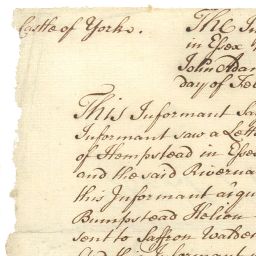 Castle of York.
The In
in Essex
John Adam
day of Fe
This Informant Sa
Informant saw a Lette
of Hempstead in Esse
and the said Riverna
this Informant acqu
Bumpstead Helion
sent to Saffron Walde
And this Informant